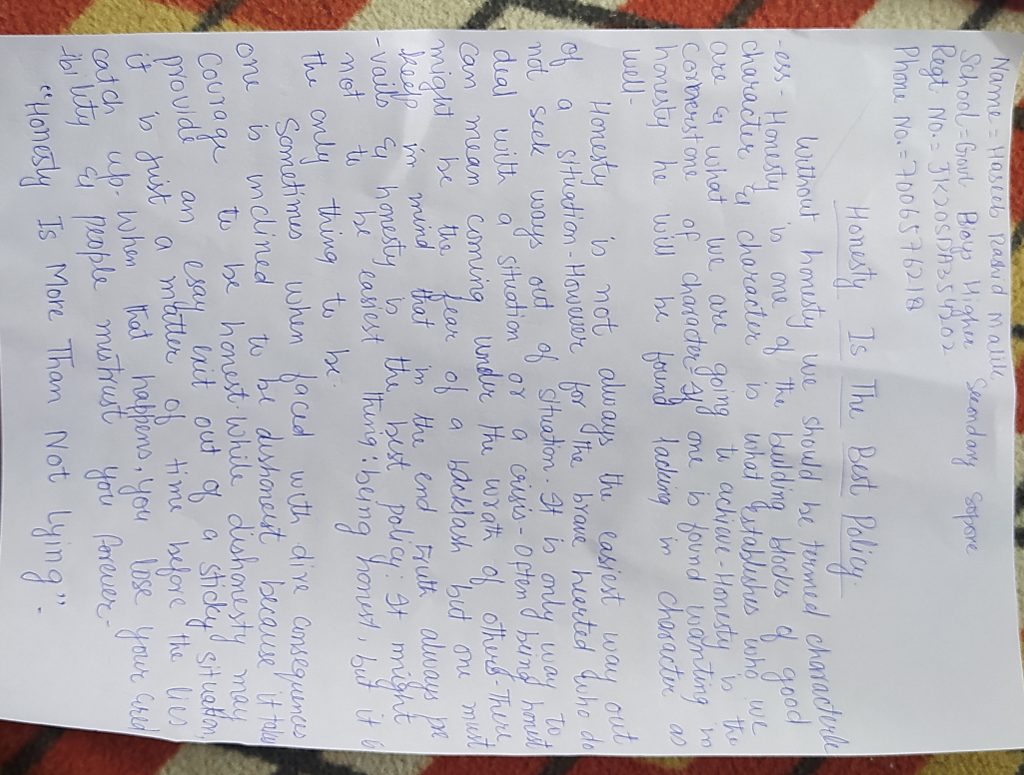 Name = Haseeb Rashid malik
School = Govt. Boys Higher Secondary sopore
Regt. No. = JK205DA254902
Phone No. = 7006576218
Honesty Is The Best Policy.
Without honesty we should be termed characterle
-ess - Honesty is one of the building blocks of good
character & character is what establishes who we
are & what we are going to achieve - Honesty is the
cornerstone of character. If one is found wanting in
honesty he will be found lacking in character as
well -
Honesty is not always the easiest way out
of a situation - However for the brave hearted who do
not seek ways out of situation. It is only way to
deal with a situation or a crisis - Often being honest
can mean coming under the wrath of others. There
might be the fear of a backlash but one must
keep in mind that in the end truth always pre
-vails & honesty is the best policy. It might
not to be easiest thing : being honest, but it is
the only thing to be.
Sometimes when faced with dire consequences
one is inclined to be dishonest because it takes
Courage to be honest. While dishonesty may
provide an esay exit out of a sticky situation,
it is just a matter of time before the lies
catch up. When that happens, you lose your cred
-ibility & people mistrust you forever -
"Honesty Is More Than Not Lying" -